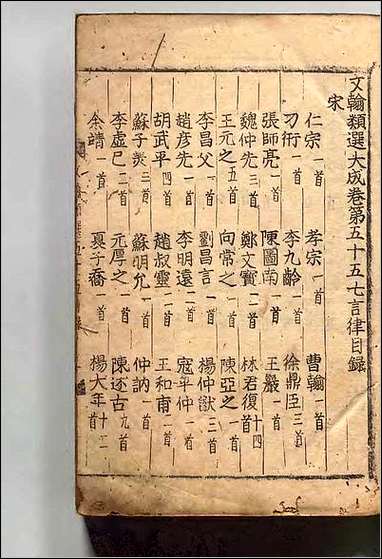 文翰類選大成卷第五十五七言律目錄
宋
仁宗一首 孝宗一首 曹翰一首
刁衎一首 李九齡一首 徐鼎臣三首
張師亮一首 陳圖南一首 王嚴一首
魏仲先三首 鄭文寶二首 林君復十四首
王元之五首 向常之一首 陳亞之一首
李昌父一首 劉昌言一首 楊仲猷三首
趙彦先一首 李明遠二首 寇平仲一首
胡武平四首 趙叔靈一首 王和甫一首
蘇子美三首 蘇明允一首 仲訥一首
李虛已二首 元厚之一首 陳述古九首
余靖一首 夏子喬一首 楊大年十二首